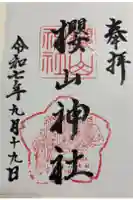 奉拝
櫻山神社
令和七年九月十九日